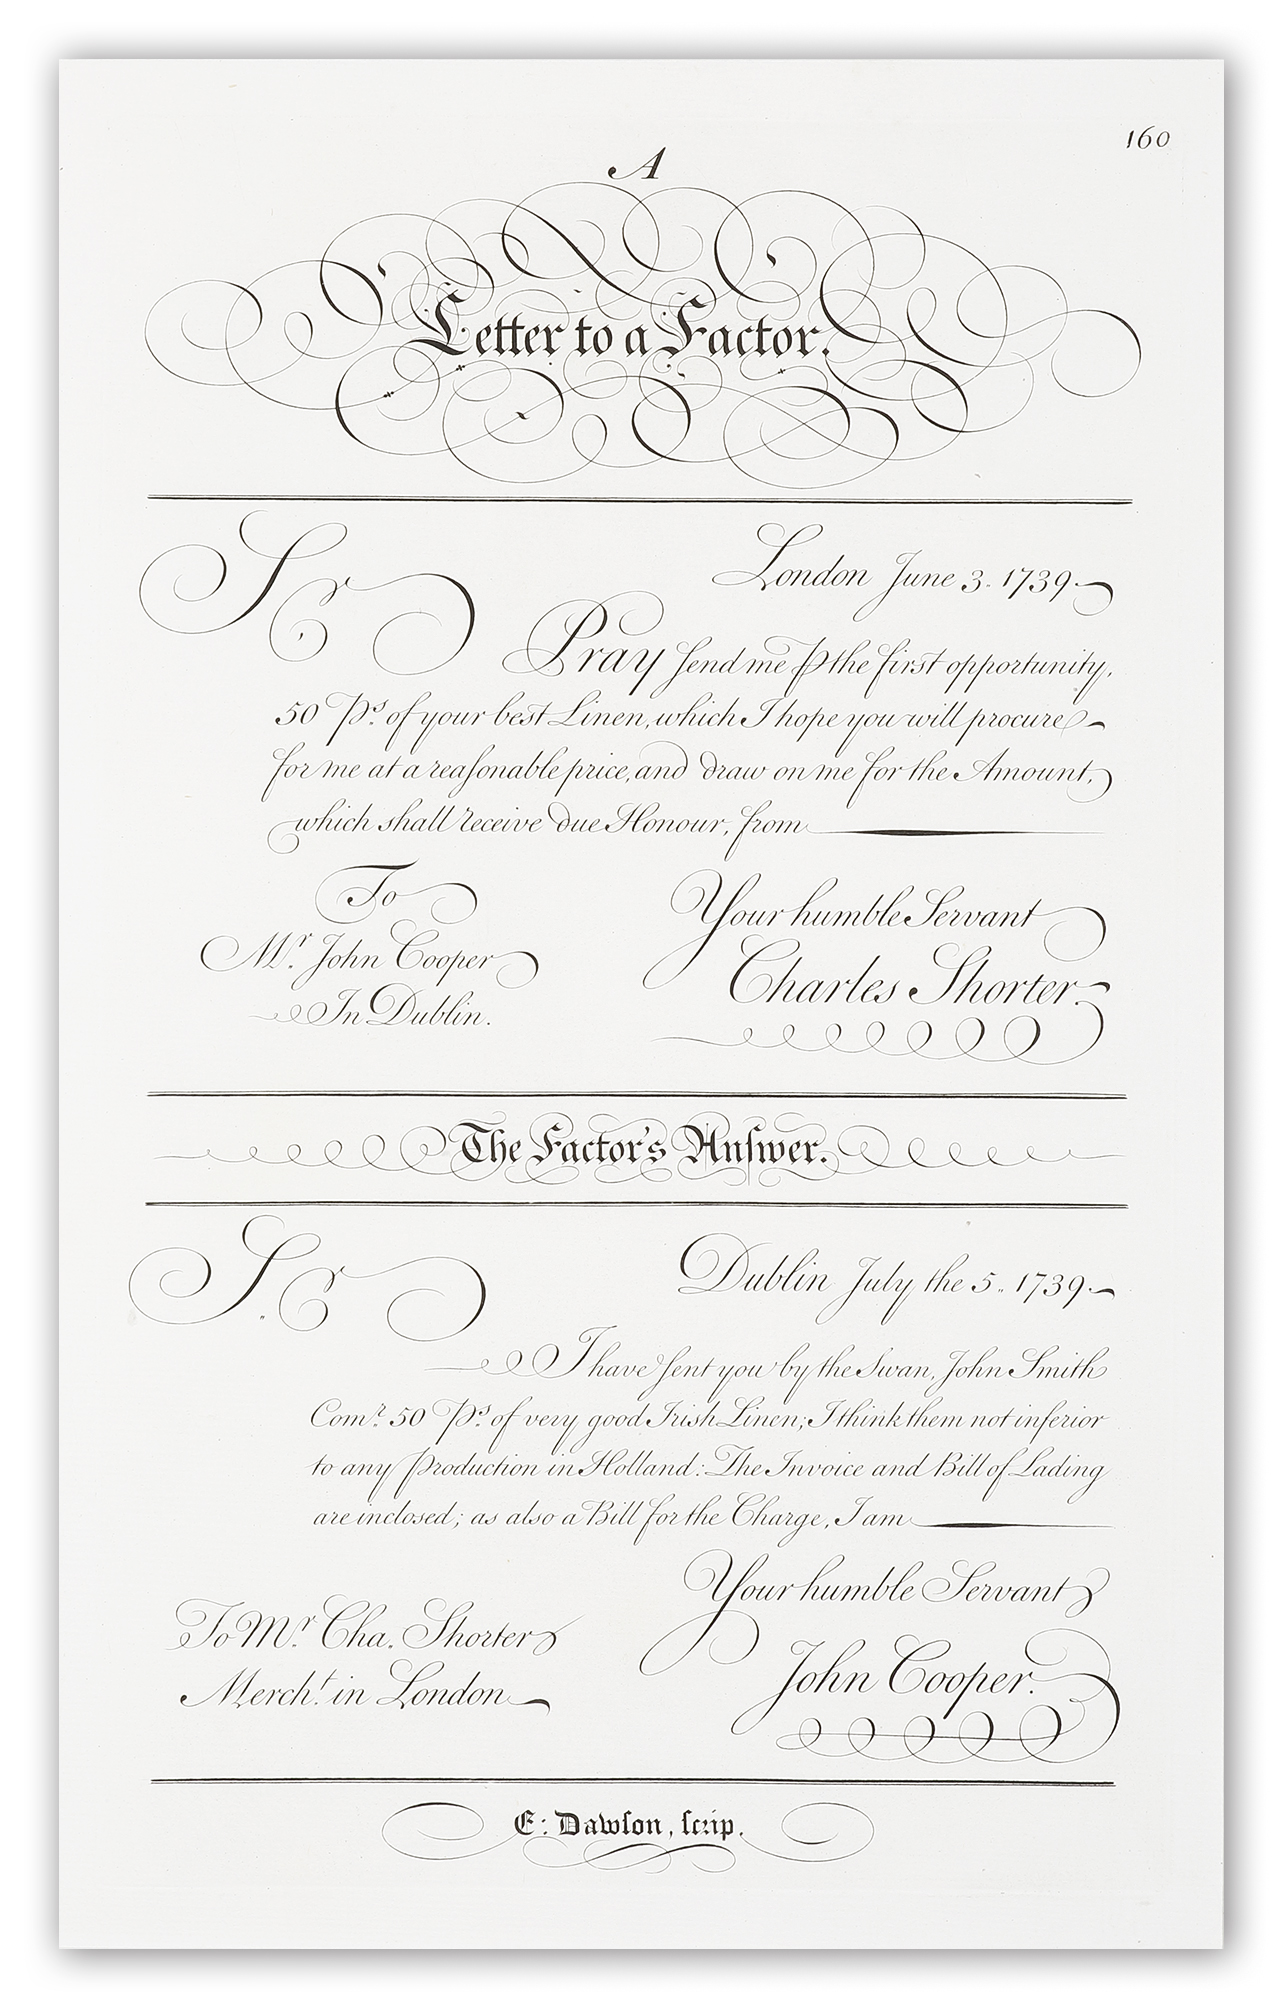 160
A
Letter to a Factor.
Sr.
London June 3. 1739
Pray ſend me ⅌ the first opportunity,
50 Ps. of your best Linen, which I hope you will procure
for me at a reaſonable price, and draw on me for the Amount,
which shall receive due Honour, from
To
Mr. John Cooper
In Dublin.
Your humble Servant
Charles Shorter.
The Factor's Anſwer.
Sr.
Dublin July the 5.. 1739
I have ſent you by the Swan, John Smith
Comr. 50 Ps. of very good Irish Linen; I think them not inferior
to any Production in Holland: The Invoice and Bill of Lading
are inclosed; as also a Bill for the Charge, I am
Your humble Servant
To Mr. Cha. Shorter
Mercht. in London
John Cooper.
E: Dawſon, ſcrip.